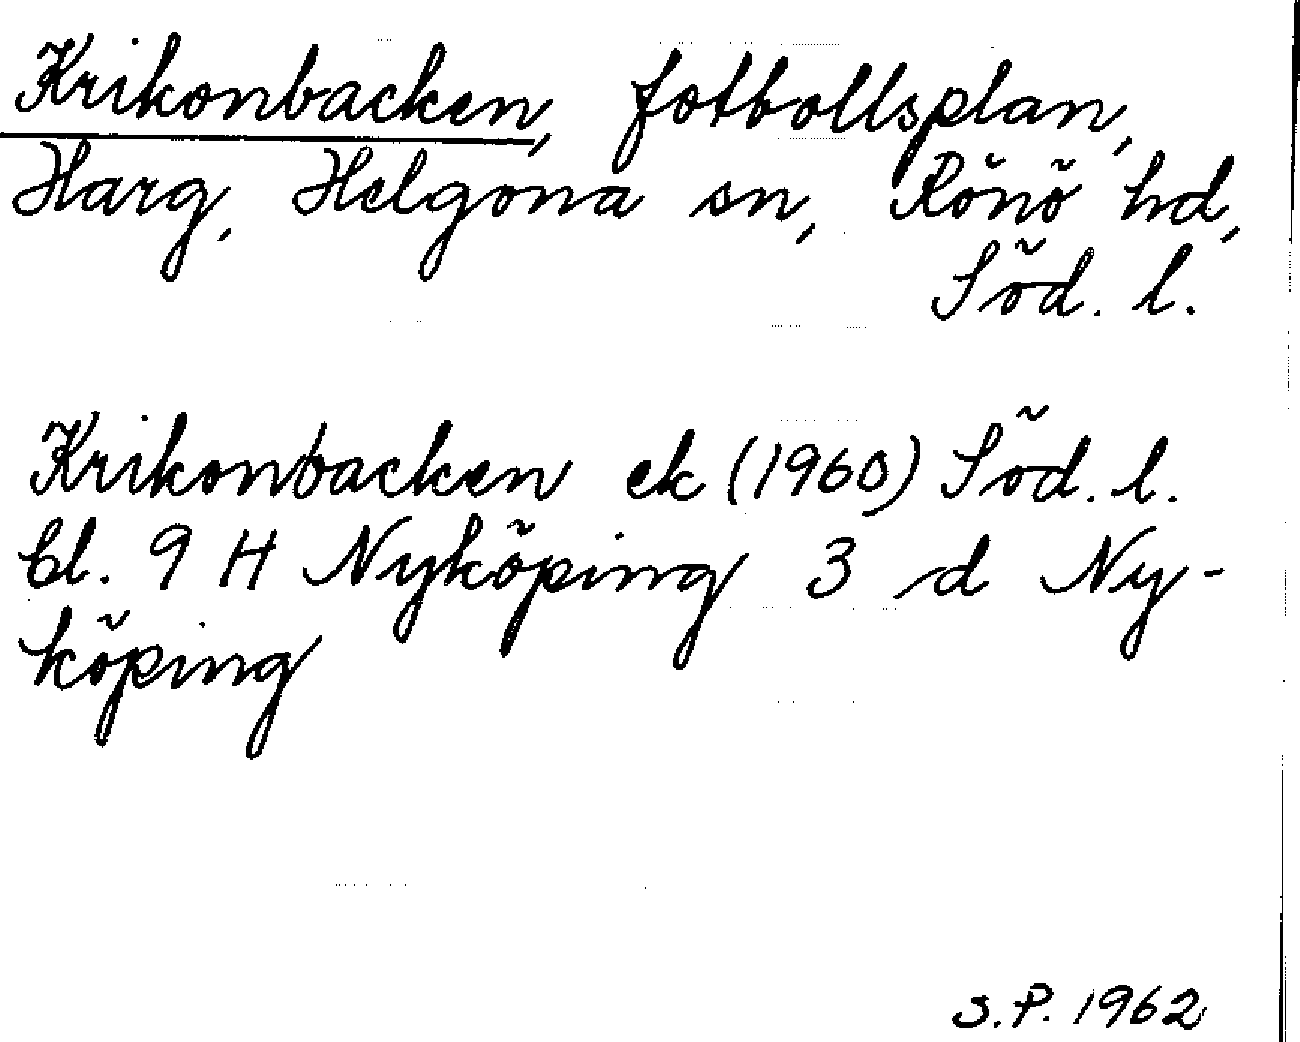 Krikonbacken, fotbollsplan,
Harg, Helgona sn, Rönö hd,
Söd. l.
Krikonbacken ek (1960) Söd. l.
bl. 9 H Nyköping 3 d Ny-
köping
S.P. 1962